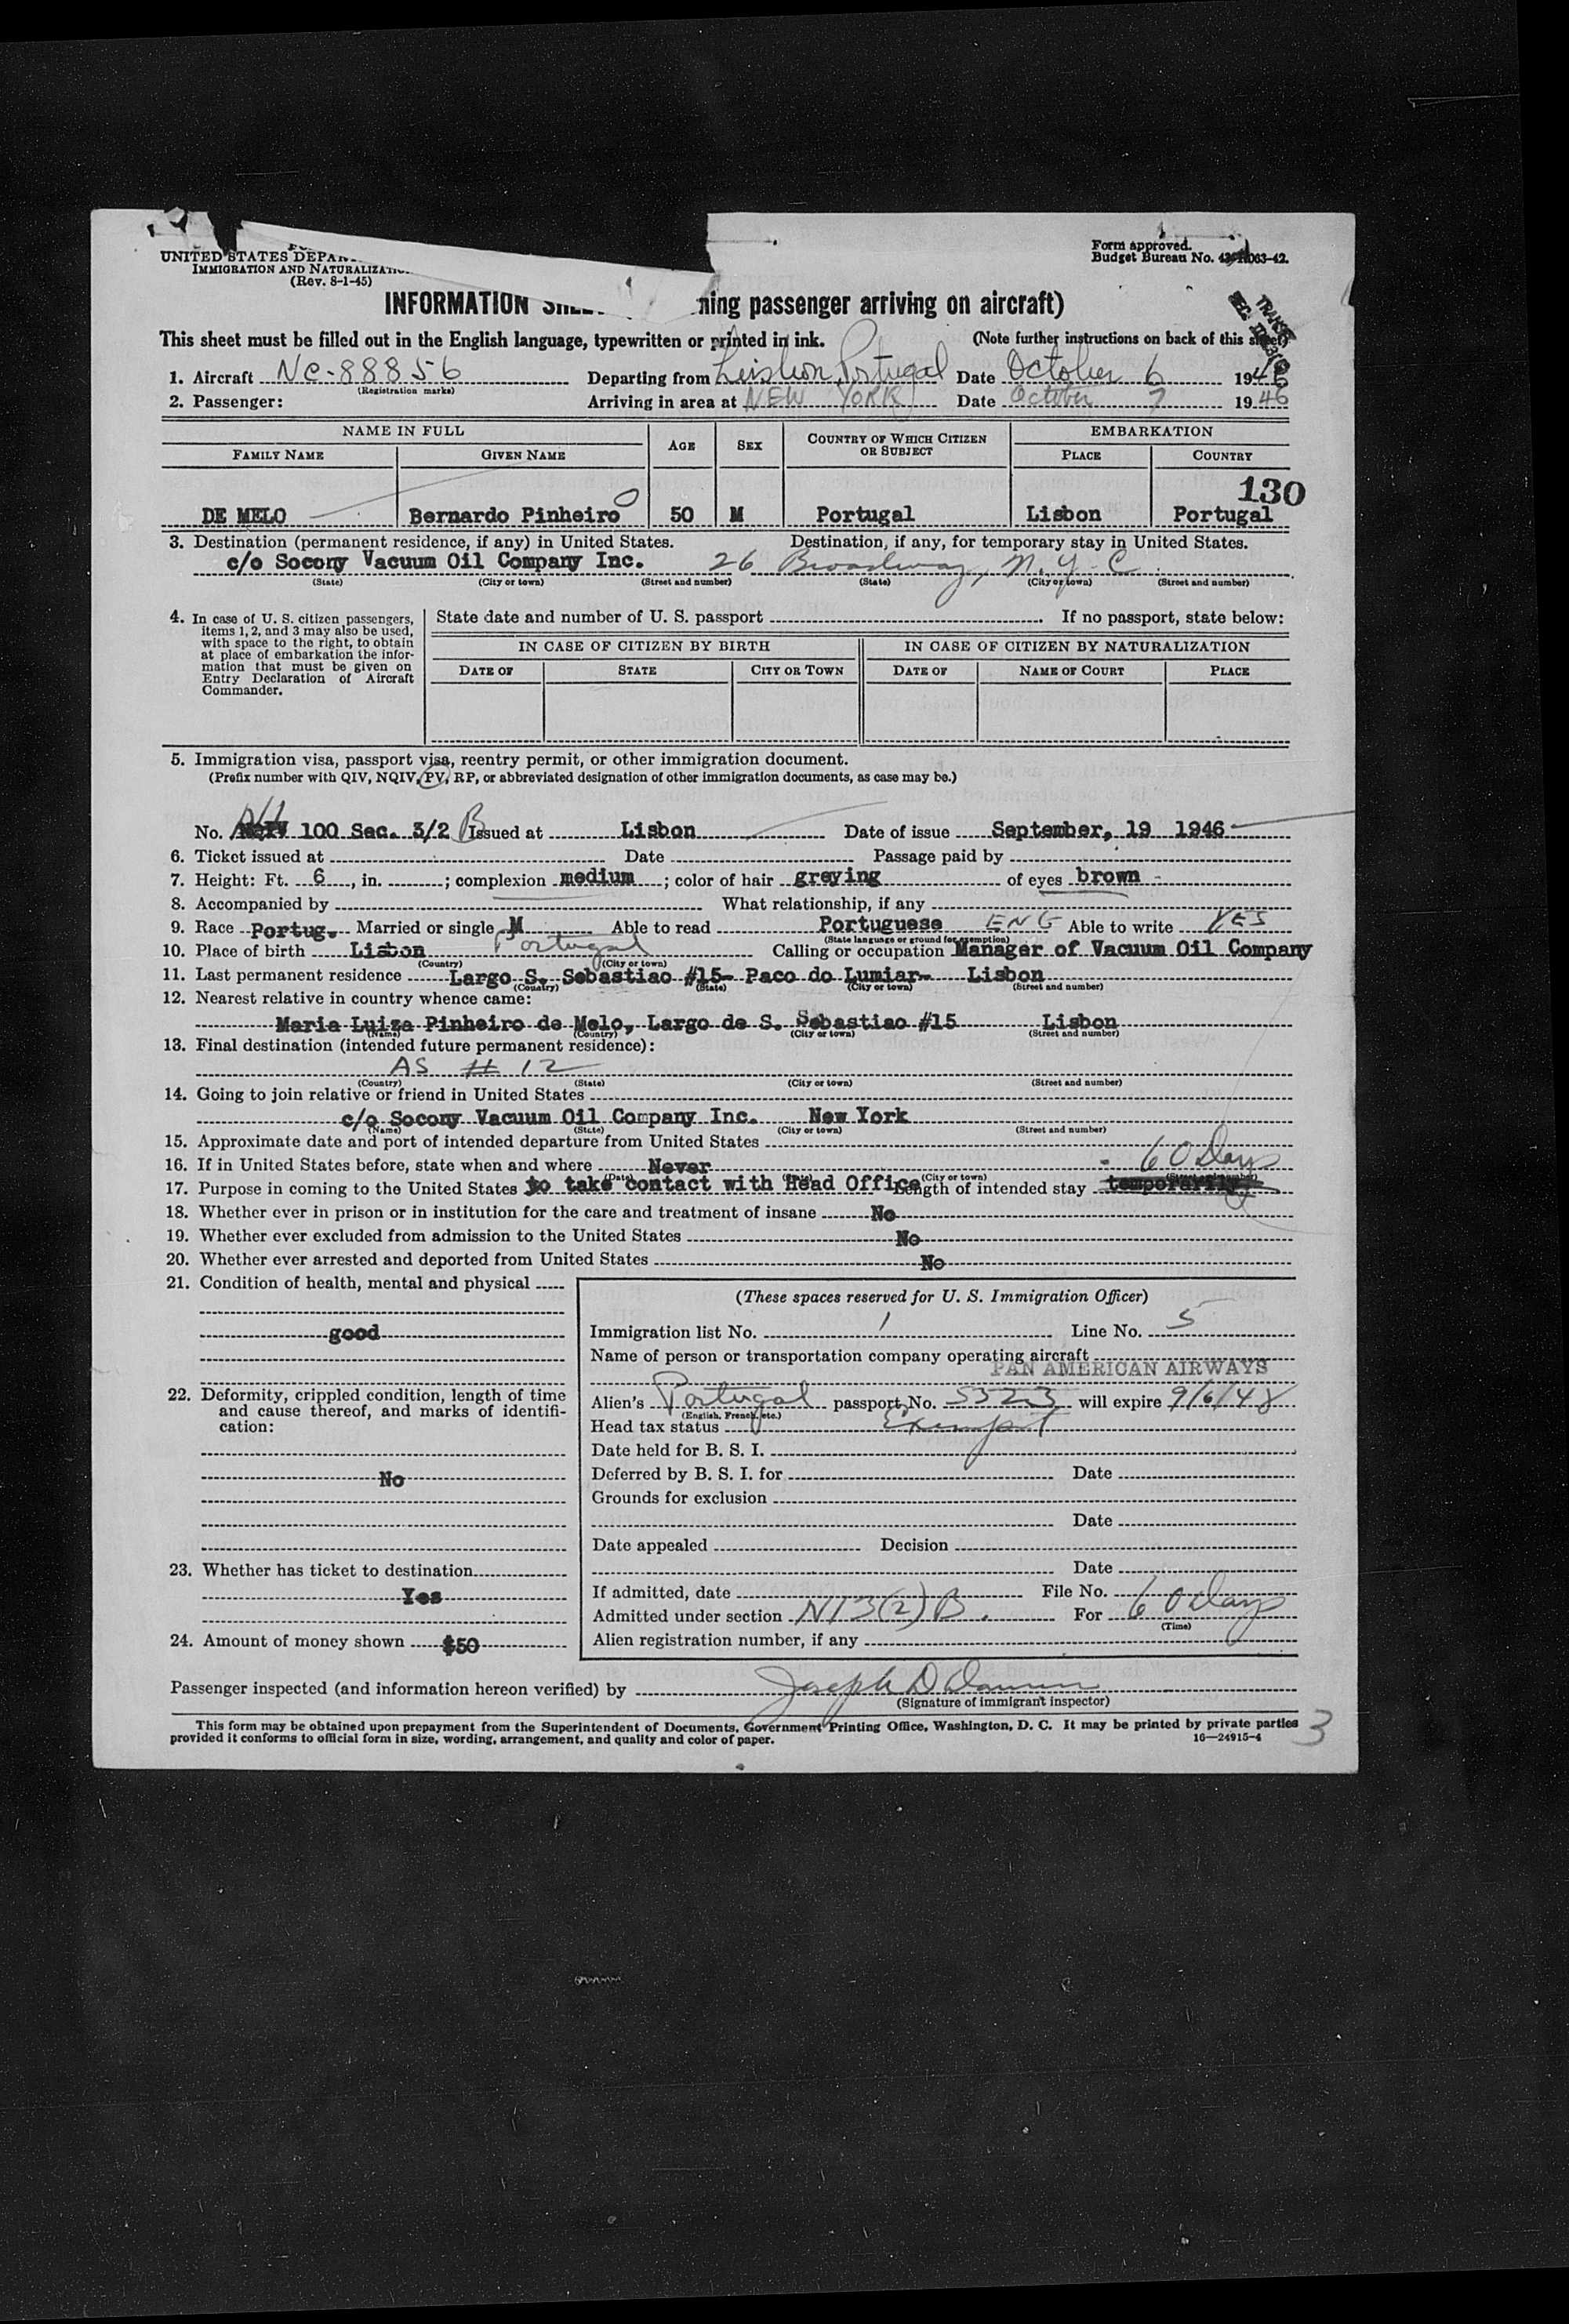 UNITED STATES
IMMIGRATION AND
(Rev. 8-1-45)
Form approved.
Budget Bureau No.
INFORMATION passenger arriving on aircraft)
This sheet must be filled out in the English language, typewritten or printed in ink. (Note further instructions on back of this sheet)
1. Aircraft NC-88856 Departing from Lisbon, Portugal Date October 6 1946
(Registration marks)
2. Passenger: Arriving in area at NEW YORK Date October 7 1946
NAME IN FULL AGE SEX COUNTRY OF WHICH CITIZEN OR SUBJECT EMBARKATION
FAMILY NAME GIVEN NAME PLACE COUNTRY
130
DE MELO Bernardo Pinheiro 50 M Portugal Lisbon Portugal
3. Destination (permanent residence, if any) in United States. Destination, if any, for temporary stay in United States.
c/o Socony Vacuum Oil Company Inc. 26 Broadway, N.Y.C.
(State) (City or town) (Street and number) (State) (City or town) (Street and number)
4. In case of U. S. citizen passengers,
items 1, 2, and 3 may also be used,
with space to the right, to obtain
at place of embarkation the infor-
mation that must be given on
Entry Declaration of Aircraft
Commander.
State date and number of U. S. passport If no passport, state below:
IN CASE OF CITIZEN BY BIRTH IN CASE OF CITIZEN BY NATURALIZATION
DATE OF STATE CITY OR TOWN DATE OF NAME OF COURT PLACE
5. Immigration visa, passport visa, reentry permit, or other immigration document.
(Prefix number with QIV, NQIV, PV, RP, or abbreviated designation of other immigration documents, as case may be.)
No. 100 Sec. 3/2 B Issued at Lisbon Date of issue September, 19 1946
6. Ticket issued at Date Passage paid by
7. Height: Ft. 6, in. ; complexion medium ; color of hair greying of eyes brown
8. Accompanied by What relationship, if any
9. Race Portug. Married or single M Able to read Portuguese ENG Able to write YES
(State language or ground for exemption)
10. Place of birth Lisbon Portugal Calling or occupation Manager of Vacuum Oil Company
(Country) (City or town)
11. Last permanent residence Largo S. Sebastiao #15- Paco do Lumiar- Lisbon
(Country) (State) (City or town) (Street and number)
12. Nearest relative in country whence came:
Maria Luiza Pinheiro de Melo, Largo de S. Sebastiao #15 Lisbon
(Name) (Country) (City or town) (Street and number)
13. Final destination (intended future permanent residence):
AS # 12
(Country) (State) (City or town) (Street and number)
14. Going to join relative or friend in United States
c/o Socony Vacuum Oil Company Inc. New York
(Name) (State) (City or town) (Street and number)
15. Approximate date and port of intended departure from United States
16. If in United States before, state when and where Never 60 Days
(Date) (City or town)
17. Purpose in coming to the United States to take contact with Head Office Length of intended stay temporarily
18. Whether ever in prison or in institution for the care and treatment of insane No
19. Whether ever excluded from admission to the United States No
20. Whether ever arrested and deported from United States No
21. Condition of health, mental and physical
good
22. Deformity, crippled condition, length of time
and cause thereof, and marks of identifi-
cation:
No
23. Whether has ticket to destination
Yes
24. Amount of money shown $50
(These spaces reserved for U. S. Immigration Officer)
Immigration list No. 1 Line No. 5
Name of person or transportation company operating aircraft
PAN AMERICAN AIRWAYS
Alien's Portugal passport No. 5323 will expire 9/6/48
(English, French, etc.)
Head tax status Exempt
Date held for B. S. I.
Deferred by B. S. I. for Date
Grounds for exclusion
Date
Date appealed Decision
Date
If admitted, date File No.
Admitted under section N13(2)B. For 60 Days
(Time)
Alien registration number, if any
Passenger inspected (and information hereon verified) by Joseph D
(Signature of immigrant inspector)
This form may be obtained upon prepayment from the Superintendent of Documents, Government Printing Office, Washington, D. C. It may be printed by private parties
provided it conforms to official form in size, wording, arrangement, and quality and color of paper. 16—24915-4
3